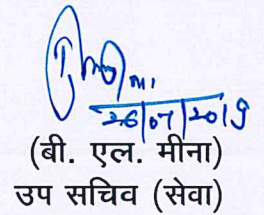 26/07/2019
(बी. एल. मीना)
उप सचिव (सेवा)